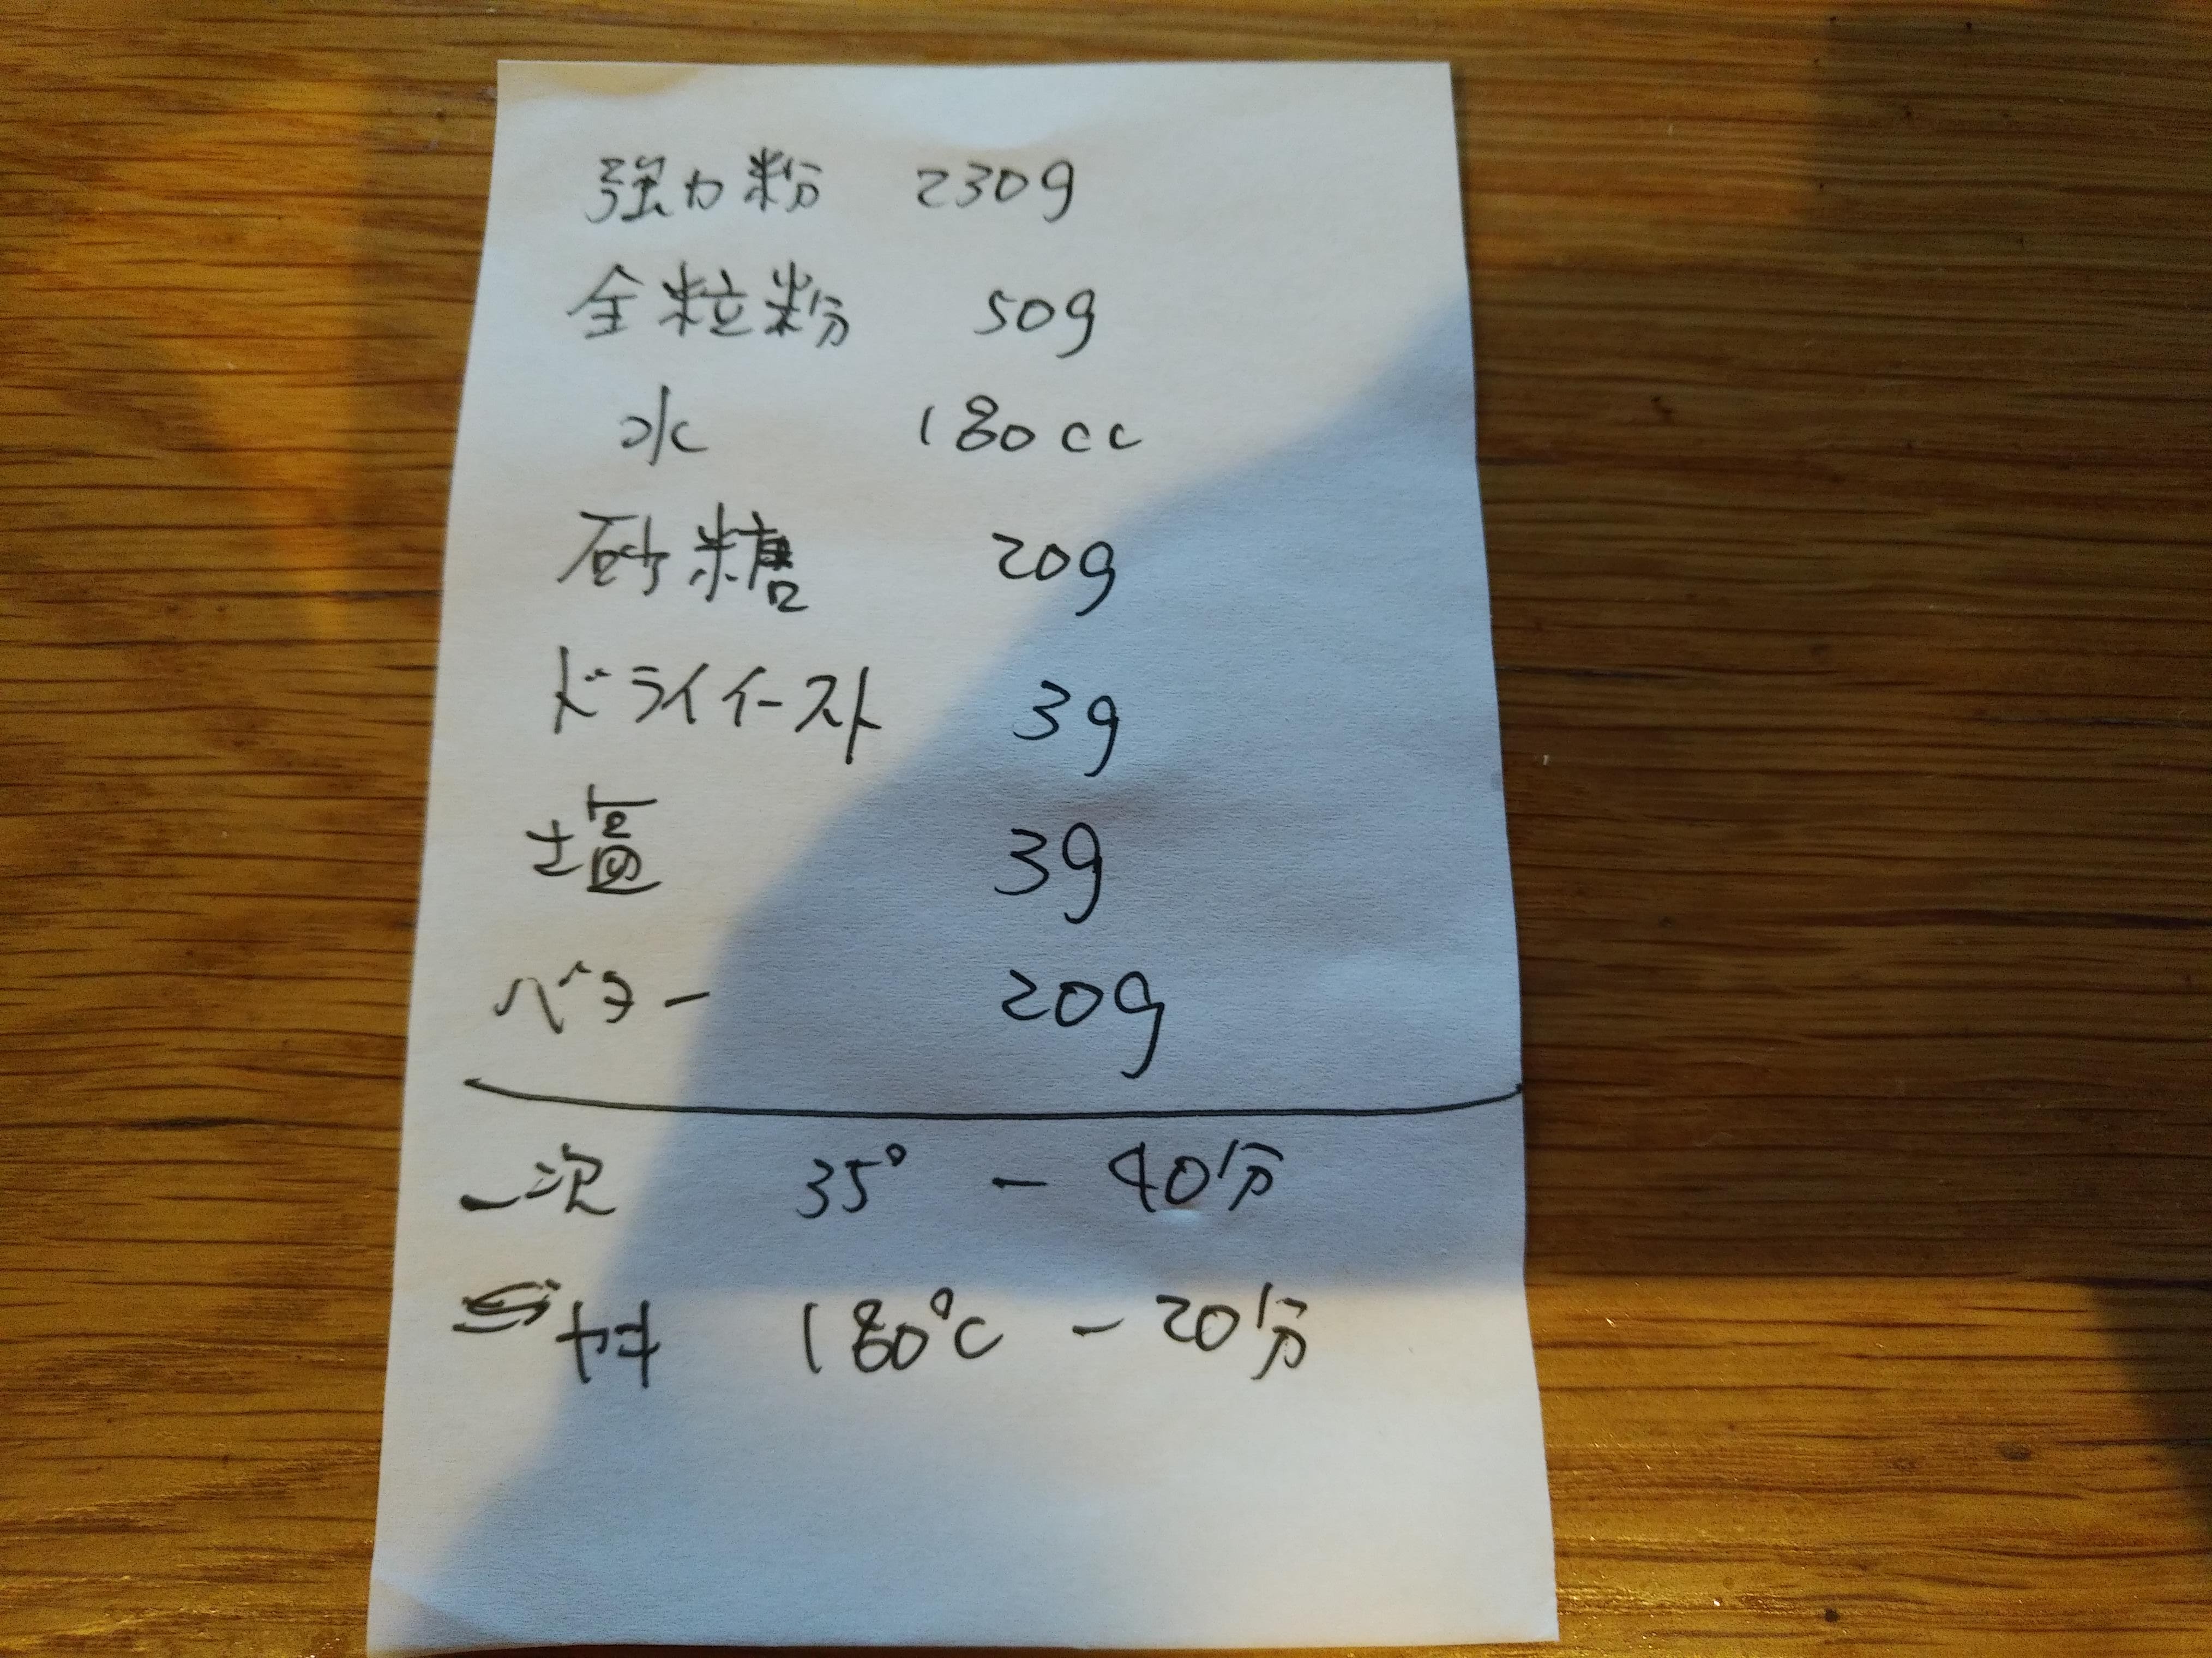 強力粉 230g
全粒粉 50g
水 180cc
砂糖 20g
ドライイースト 3g
塩 3g
バター 20g
一次 35° - 40分
180℃ - 20分